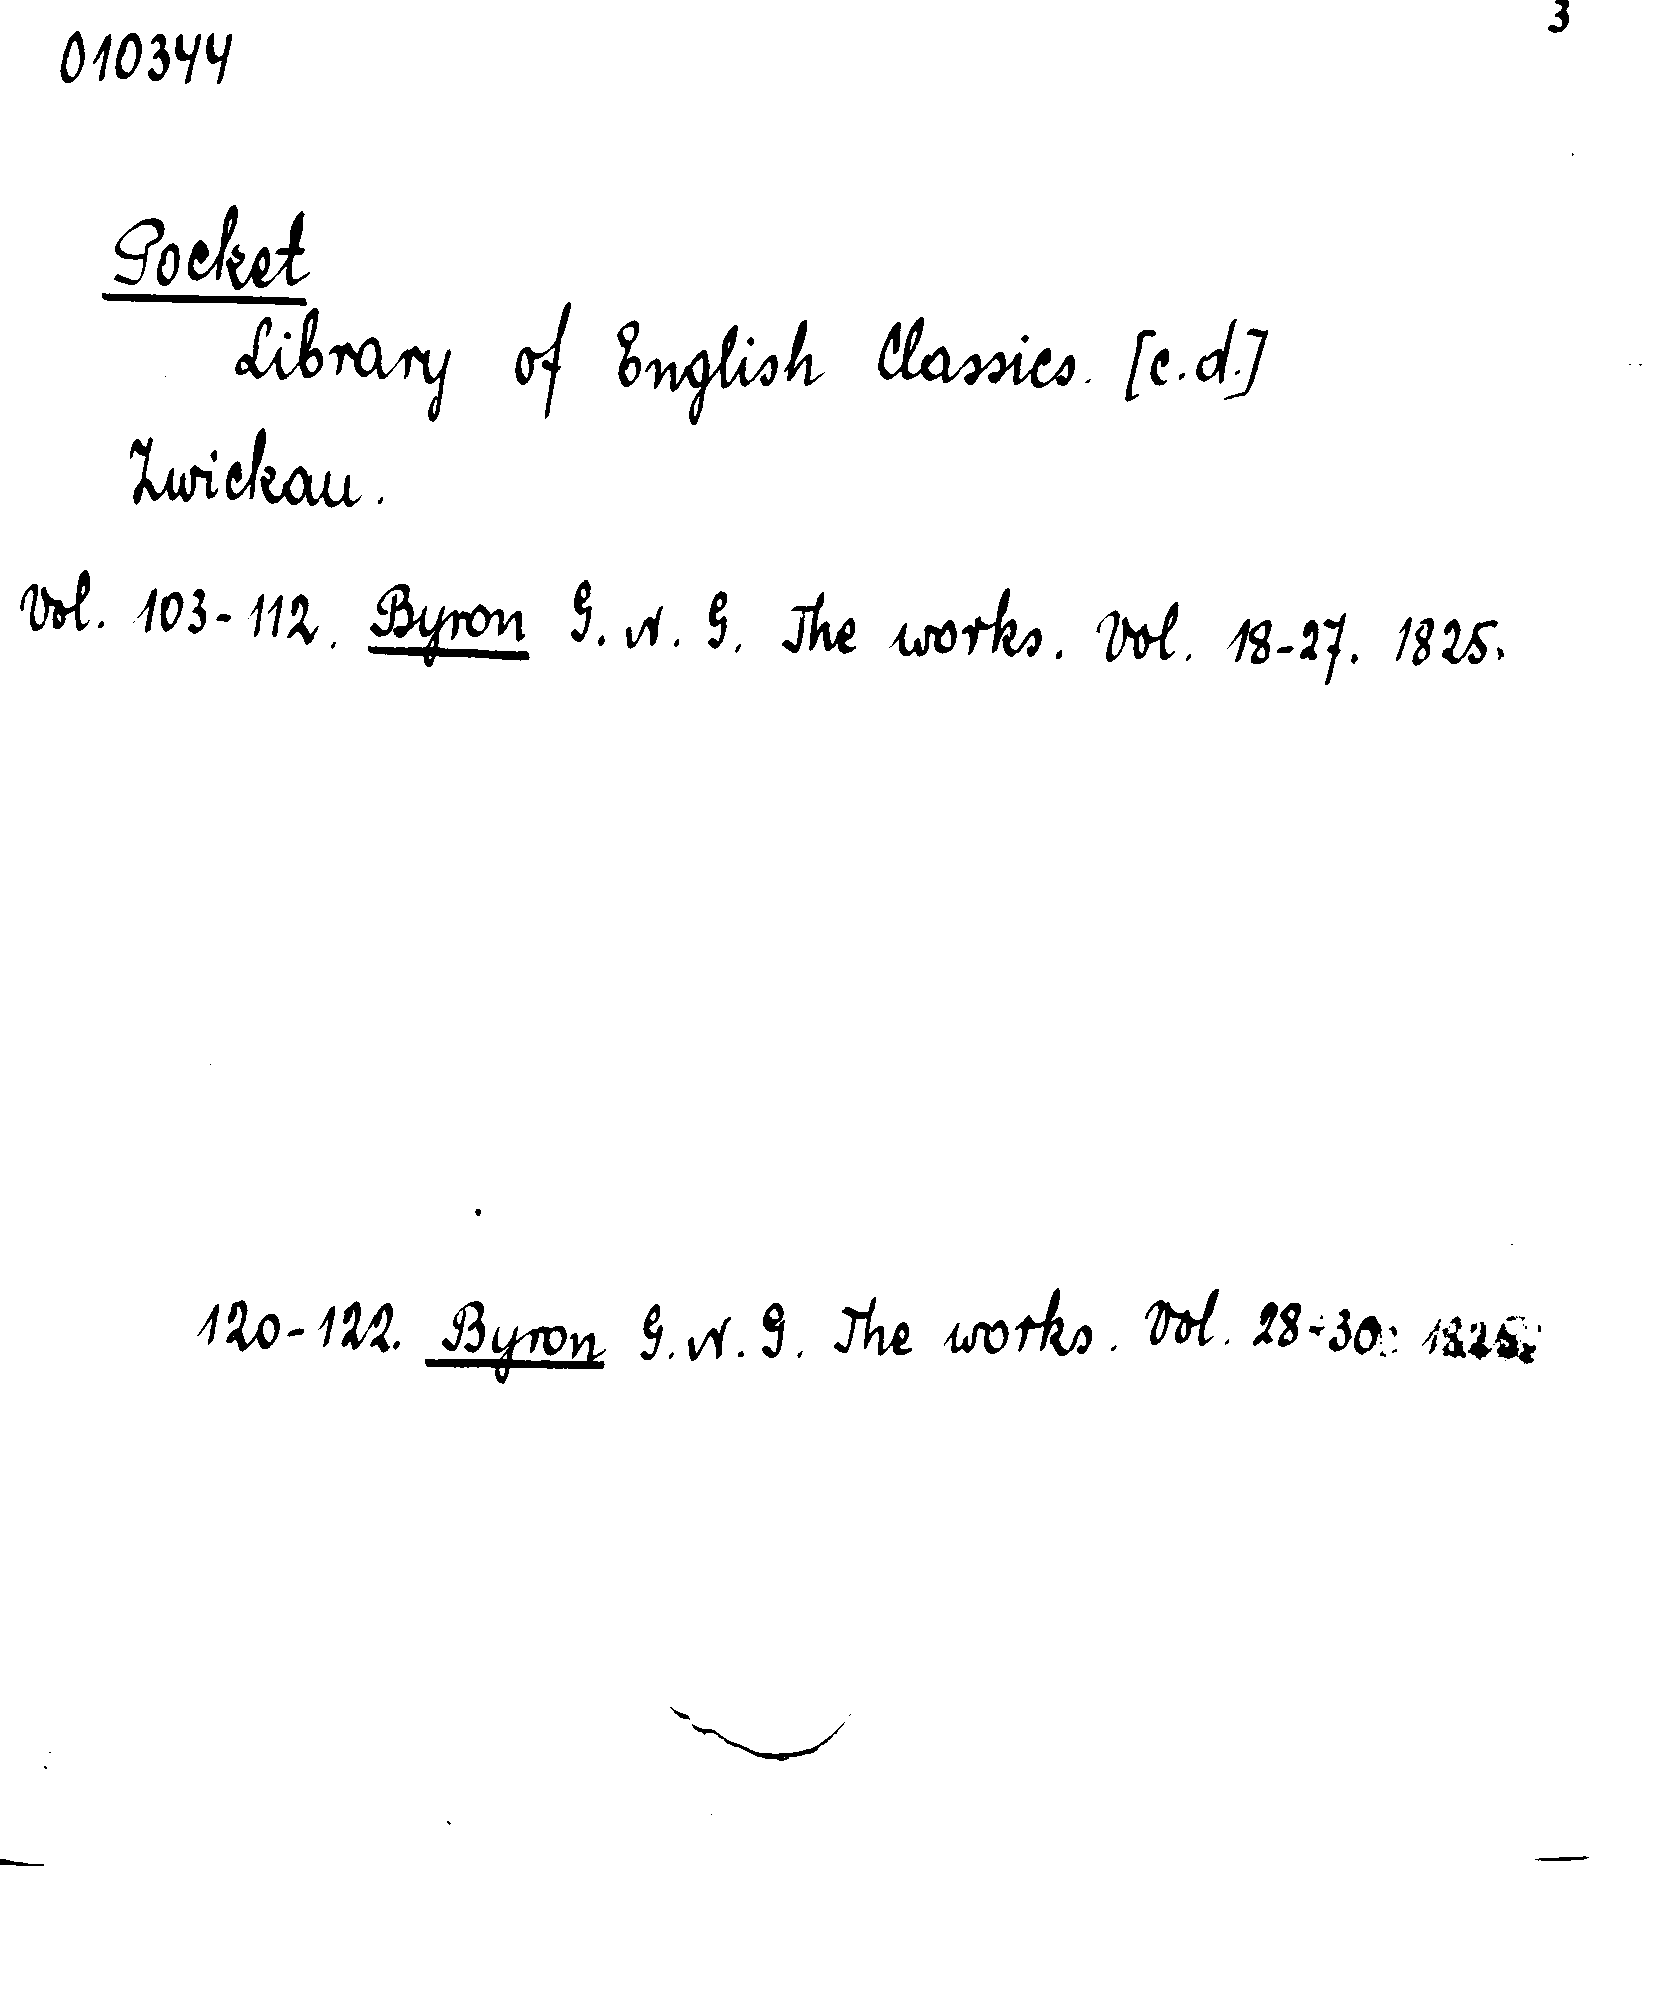 3
010344
Pocket
Library of English Classics. [c.d.]
Zwickau.
Vol. 103-112. Byron G. N. G. The works. Vol. 18-27. 1825.
120-122. Byron G. N. G. The works. Vol. 28-30. 1825.